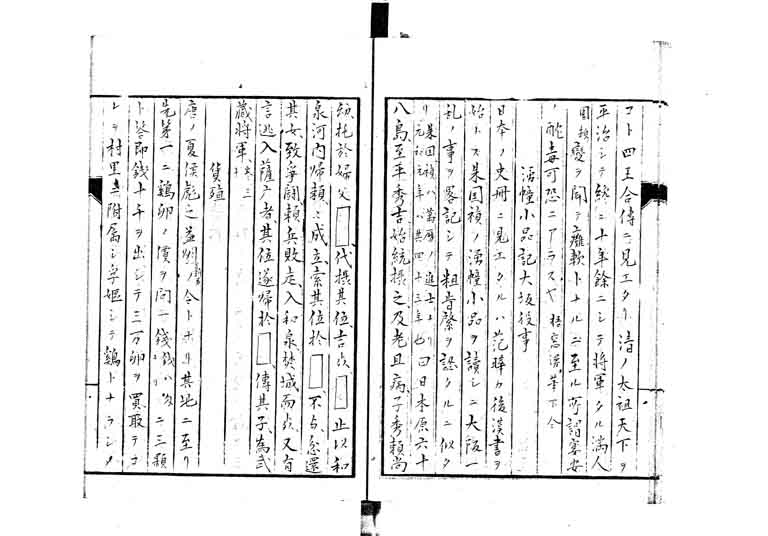 コト四王合傳ニ見エタリ清ノ太祖天下ヲ
平治シテ終ニ十年餘ニシテ将軍タル満人
変ヲ聞テ癱軟トナルニ至ル所謂宴安
ノ酖毒可恐ニアラスヤ
湧幢小品記大坂役事
日本ノ史冊ニ見エタルハ范曄カ後漢書ヲ
始トス朱国禎ノ湧幢小品ヲ讀シニ大阪一
乱ノ事ヲ畧記シテ粗音繋ヲ恐クルニ似タ
リ朱国禎ハ萬暦ノ進士ナリ曰日本原六十
八島至平秀吉始統攝之及老且病子秀頼尚
幼托於婦父□□代攝其位吉炎□□止以和
泉河内帰頼頼成立索其位於□□不与忿還
其女致争闘頼兵敗走入和泉焚城而炎又有
言逃入薩广者其位遂帰於□□傳其子為武
藏将軍 巻三
貨殖
唐ノ夏侯彪之益州ノ令トナリ其地ニ至リ
先第一ニ鶏卵ノ價ヲ問一銭ニ三顆
ト答即銭十千ヲ出シテ三万卵ヲ買取テコ
レヲ村里ニ附属シ孚嫗シテ鶏トナラシメ